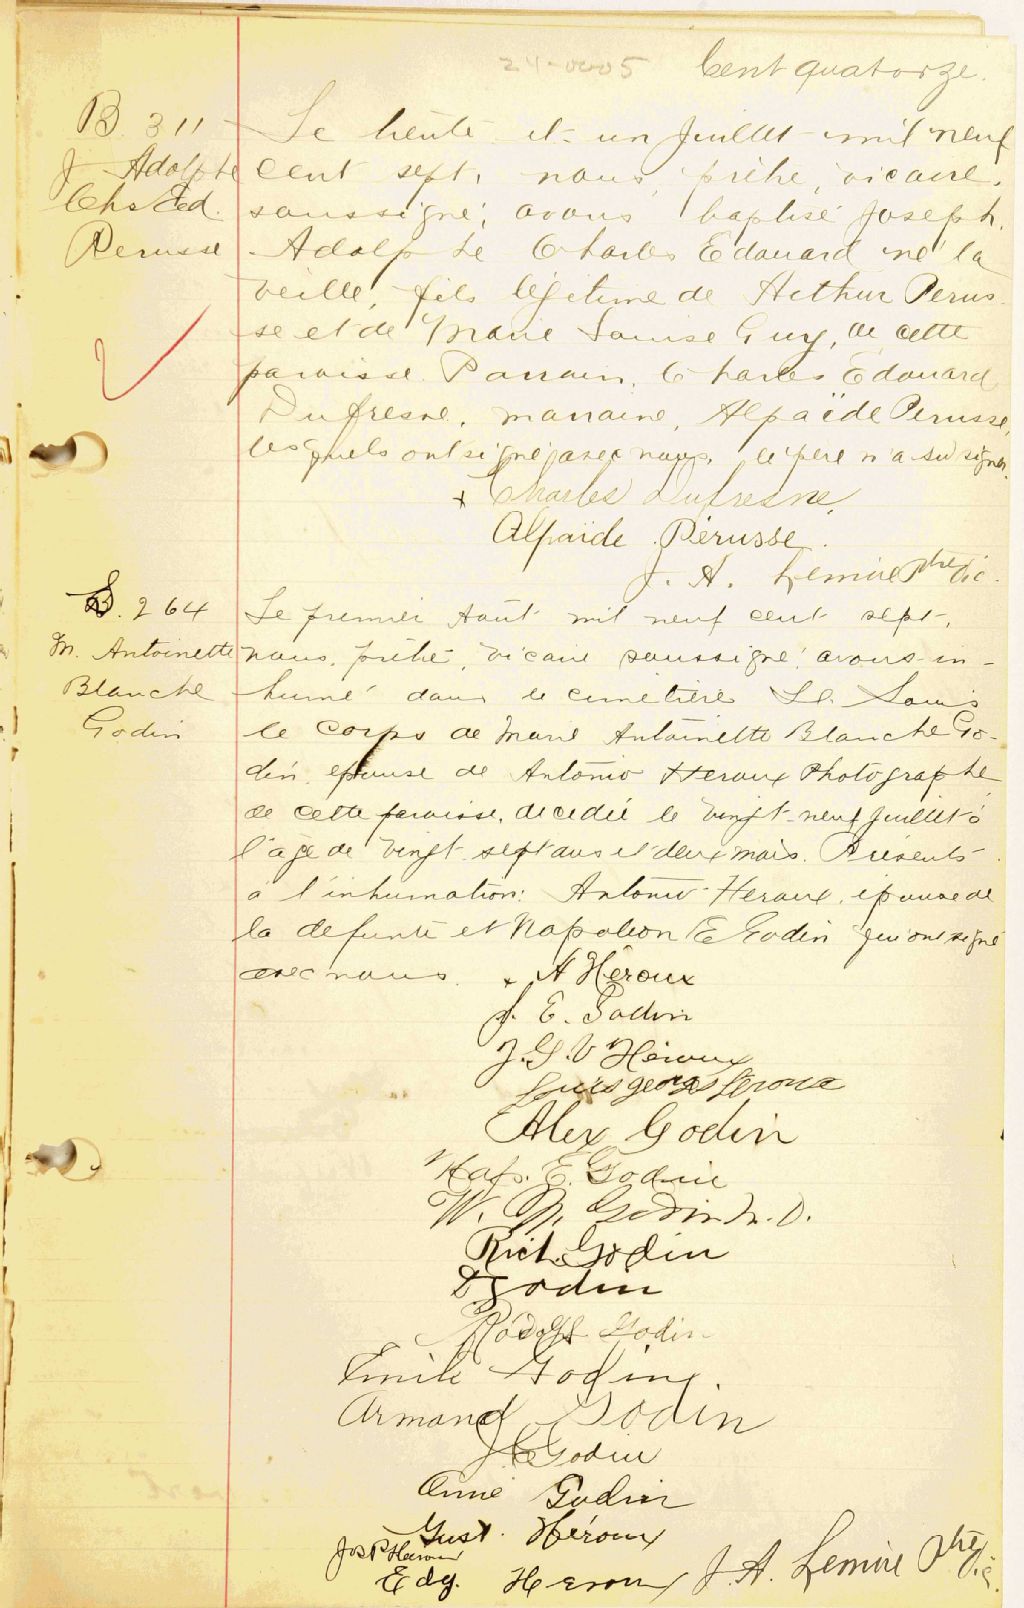 24-0005 Cent quatorze.
B. 311
J Adolphe
Chs Ed.
Perusse
Le trente et un Juillet mil neuf
cent sept, nous, prêtre, vicaire,
soussigné, avons baptisé Joseph
Adolphe Charles Edouard né la
veille, fils légitime de Arthur Perus-
se et de Marie Louise Guy, de cette
paroisse. Parrain, Charles Edouard
Dufresne, marraine, Alpaïde Perusse,
lesquels ont signé avec nous, le père n'a su signer.
x Charles Dufresne,
Alpaïde Pérusse.
J. A. Lemire Ptre Vic.
S. 264
M. Antoinette
Blanche
Godin
Le premier Août mil neuf cent sept,
nous, prêtre, vicaire soussigné avons in-
humé dans le cimetière St. Louis
le corps de Marie Antoinette Blanche Go-
din, épouse de Antonio Heroux Photographe
de cette paroisse, décédée le vingt-neuf Juillet à
l'âge de vingt-sept ans et deux mois. Présents
à l'inhumation: Antonio Heroux, épouse de
la defunte et Napoleon E Godin qui ont signé
avec nous. x A Héroux
J. E. Godin
J. G. V Héroux
Louis georges Heroux
Alex Godin
Nap. E. Godin
W. N. Godin M. D.
Rich. Godin
D Godin
Rodolf Godin
Emile Godin.
Armand Godin
J E Godin
Anne Godin
Gust. Héroux
Jos P Heroux
Edg. Heroux J. A. Lemire Ptre Vic.